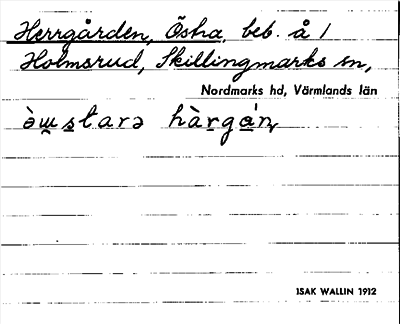 Herrgården, Östra, beb. å 1
Holmsrud, Skillingmarks sn,
Nordmarks hd, Värmlands län
ISAK WALLIN 1912